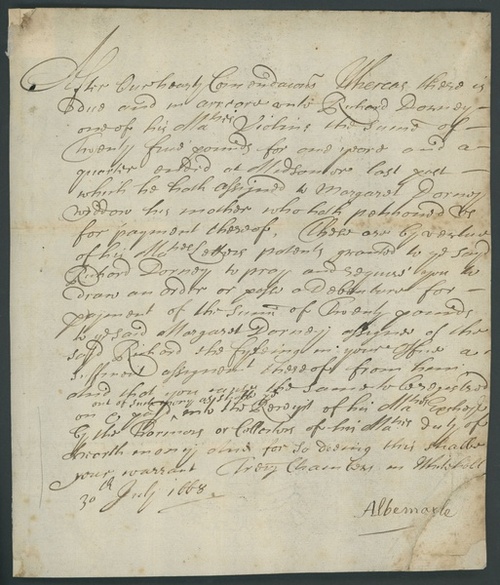 After Our hearty Comendacons Whereas there is
due and in arreare unto Richard Dorney
one of his Maties Violins the sume of
Twenty five pounds for one yeare and a
quarter ended at Midsomer last past
which he hath assigned to Margaret Dorney
widdow his mother who hath petitioned us
for payment thereof, These are by vertue
of his Maties Letters patents granted to ye said
Richard Dorney to pray and require you to
draw an order or passe a Debenture for
payment of the sume of Twenty pounds
to ye said Margaret Dorney assignee of the
said Richard she fyleing in your Office a
sufficient assignmt thereof from him
and that you the same to be registred
out of such mony as shall be
on paid into the Receipt of his Maties Excheqr
by the Farmors or Collectors of his Maties duty of
Hearth money and for so doeing this shalbe
your warrant Trery Chambers in Whitehall
30th July 1668
Albemarle